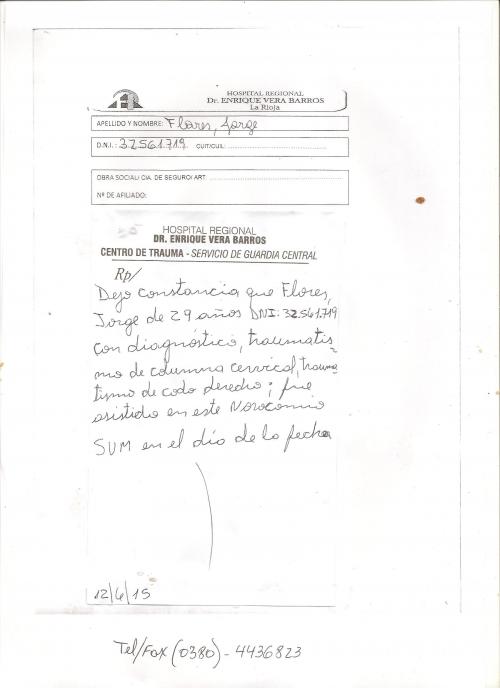 HOSPITAL REGIONAL
Dr. ENRIQUE VERA BARROS
La Rioja
APELLIDO Y NOMBRE: Flores, Jorge
D.N.I.: 32561719 CUIT/CUIL:
OBRA SOCIAL/ CIA. DE SEGURO/ ART:
Nº DE AFILIADO:
HOSPITAL REGIONAL
DR. ENRIQUE VERA BARROS
CENTRO DE TRAUMA - SERVICIO DE GUARDIA CENTRAL
Rp/
Dejo constancia que Flores,
Jorge de 29 años DNI: 32.561.719
con diagnóstico, traumatis-
mo de columna cervical, trauma
tismo de codo derecho; fue
asistido en este Nosocomio
SUM en el día de la fecha
12/6/15
Tel/Fax (0380) - 4436823